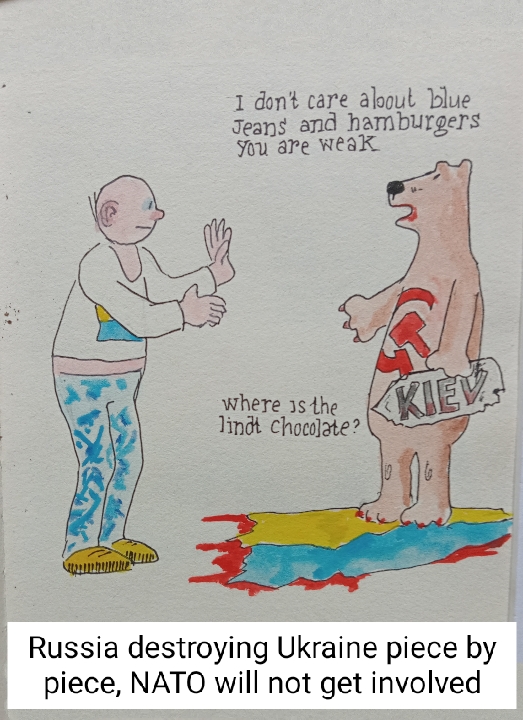 I don't care about blue
Jeans and hamburgers
You are weak
KIEV
where is the
lindt chocolate?
Russia destroying Ukraine piece by
piece, NATO will not get involved